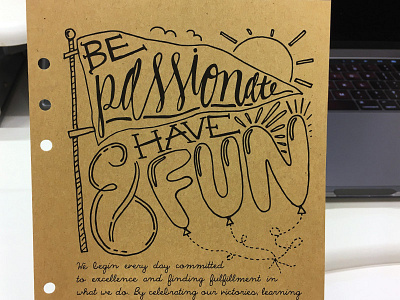 BE
passionate
HAVE
& FUN
We begin every day committed
to excellence and finding fulfillment in
what we do. By celebrating our victories, learning